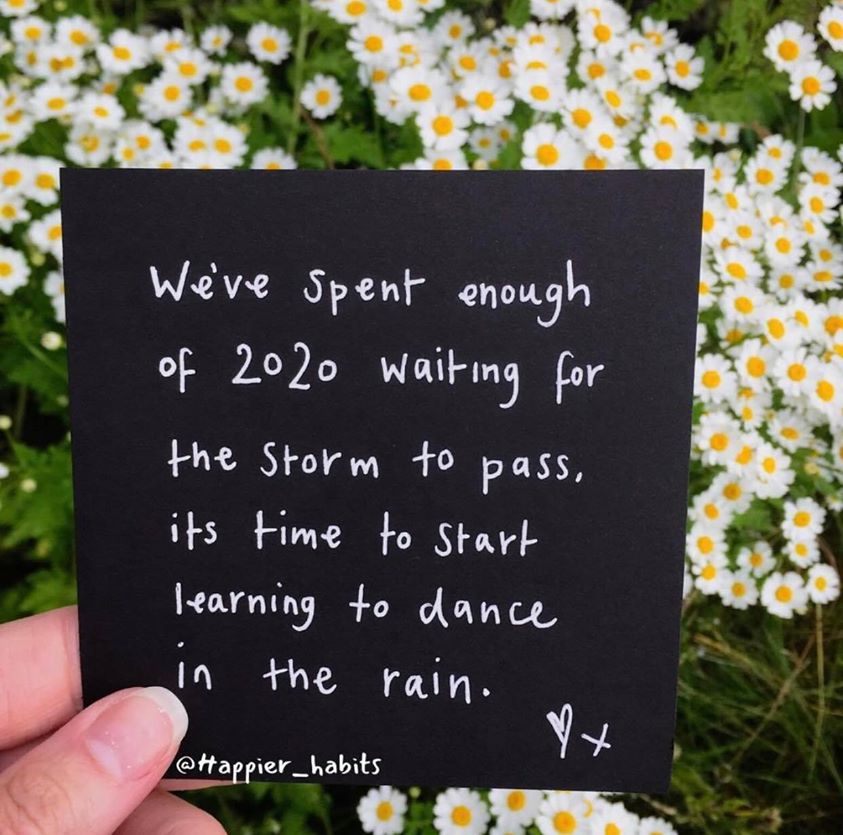 We've spent enough
of 2020 waiting for
the storm to pass,
its time to start
learning to dance
in the rain.
x
@Happier_habits